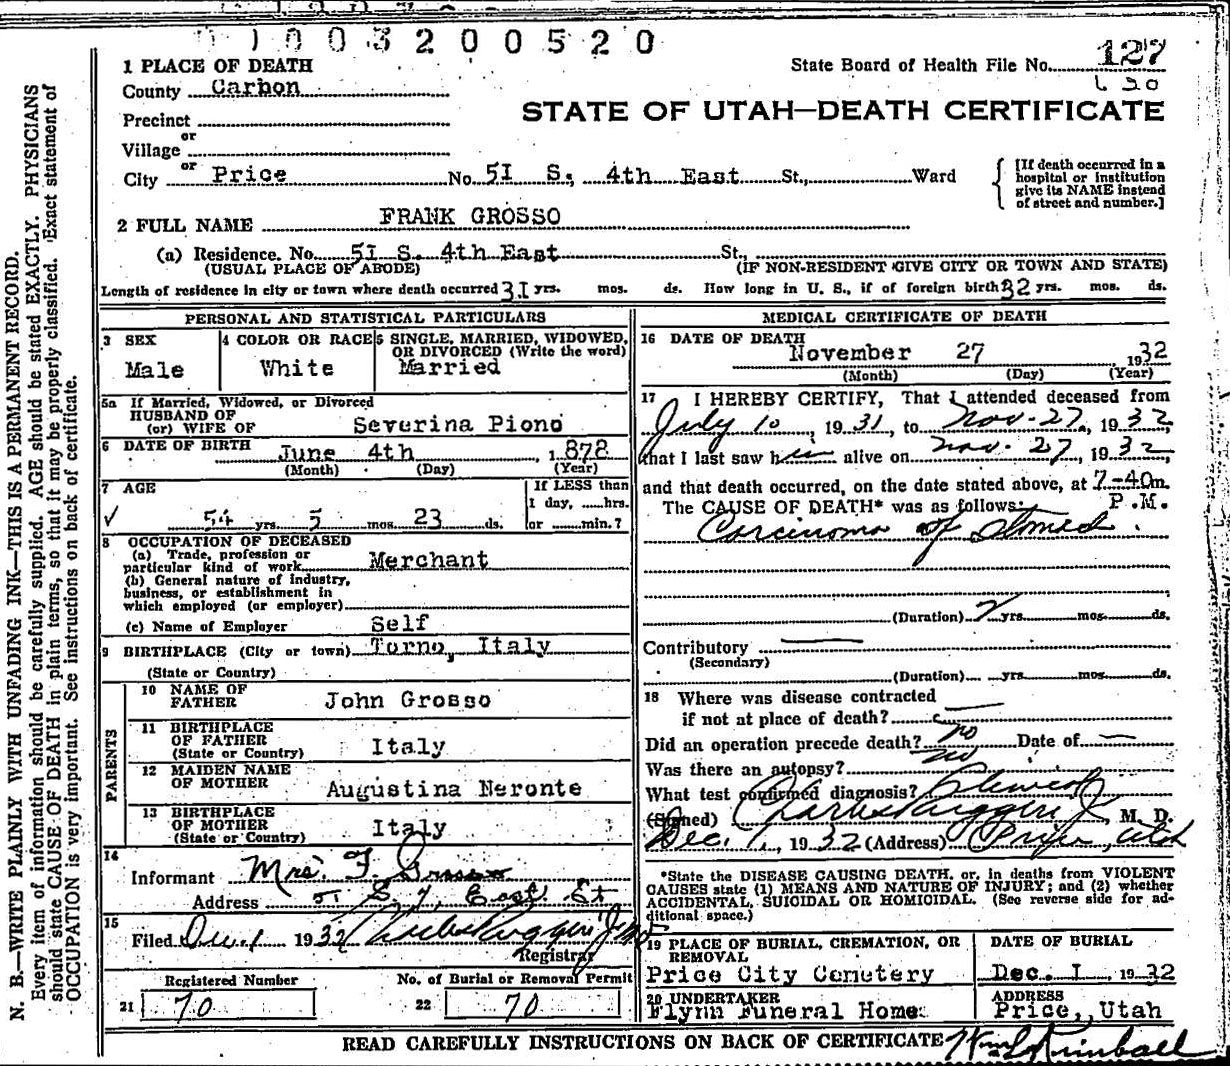 01003200520
1 PLACE OF DEATH
State Board of Health File No. 127
620
County Carbon
STATE OF UTAH—DEATH CERTIFICATE
Precinct
or
Village
or
City Price No. 51 S. 4th East St., Ward
[If death occurred in a hospital or institution give its NAME instead of street and number.]
2 FULL NAME FRANK GROSSO
(a) Residence. No. 51 S. 4th East St.,
(USUAL PLACE OF ABODE) (IF NON-RESIDENT GIVE CITY OR TOWN AND STATE)
Length of residence in city or town where death occurred 31 yrs. mos. ds. How long in U. S., if of foreign birth 32 yrs. mos. ds.
PERSONAL AND STATISTICAL PARTICULARS
3 SEX
Male
4 COLOR OR RACE
White
5 SINGLE, MARRIED, WIDOWED, OR DIVORCED (Write the word)
Married
5a If Married, Widowed, or Divorced
HUSBAND OF
(or) WIFE OF Severina Piono
6 DATE OF BIRTH June 4th, 1878
(Month) (Day) (Year)
7 AGE
54 yrs. 5 mos. 23 ds.
If LESS than
1 day, ......hrs.
or ......min.?
8 OCCUPATION OF DECEASED
(a) Trade, profession or
particular kind of work Merchant
(b) General nature of industry,
business, or establishment in
which employed (or employer)
(c) Name of Employer Self
9 BIRTHPLACE (City or town) Torno, Italy
(State or Country)
PARENTS
10 NAME OF FATHER John Grosso
11 BIRTHPLACE OF FATHER Italy
(State or Country)
12 MAIDEN NAME OF MOTHER Augustina Neronte
13 BIRTHPLACE OF MOTHER Italy
(State or Country)
14
Informant Mrs. F. Grosso
Address East St
15
Filed Dec. 1 1932 Charles Ruggeri Jr.
Registrar
Registered Number
21 70
No. of Burial or Removal Permit
22 70
MEDICAL CERTIFICATE OF DEATH
16 DATE OF DEATH
November 27 1932
(Month) (Day) (Year)
17 I HEREBY CERTIFY, That I attended deceased from
July 10, 1931, to Nov. 27, 1932,
that I last saw him alive on Nov. 27, 1932,
and that death occurred, on the date stated above, at 7-40m.
P.M.
The CAUSE OF DEATH* was as follows:
Carcinoma of Stomach
(Duration) yrs. mos. ds.
Contributory
(Secondary)
(Duration) yrs. mos. ds.
18 Where was disease contracted
if not at place of death?
Did an operation precede death? no Date of
Was there an autopsy? no
What test confirmed diagnosis?
(Signed) Charles Ruggeri Jr, M. D.
Dec. 1, 1932 (Address) Price, Utah
*State the DISEASE CAUSING DEATH, or, in deaths from VIOLENT
CAUSES state (1) MEANS AND NATURE OF INJURY; and (2) whether
ACCIDENTAL, SUICIDAL OR HOMICIDAL. (See reverse side for ad-
ditional space.)
19 PLACE OF BURIAL, CREMATION, OR REMOVAL
Price City Cemetery
DATE OF BURIAL
Dec. 1, 1932
20 UNDERTAKER
Flynn Funeral Home
ADDRESS
Price, Utah
READ CAREFULLY INSTRUCTIONS ON BACK OF CERTIFICATE
N. B.—WRITE PLAINLY WITH UNFADING INK—THIS IS A PERMANENT RECORD.
Every item of information should be carefully supplied. AGE should be stated EXACTLY. PHYSICIANS
should state CAUSE OF DEATH in plain terms, so that it may be properly classified. Exact statement of
OCCUPATION is very important. See instructions on back of certificate.